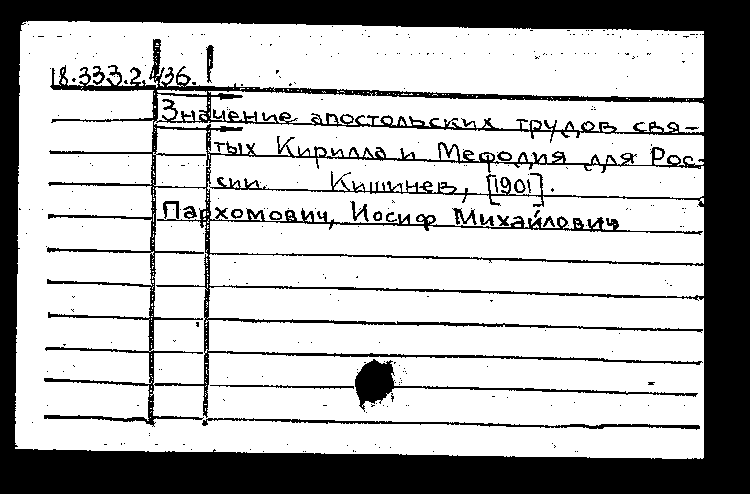 18.333.2.436.
Значение апостольских трудов свя-
тых Кирилла и Мефодия для Рос-
сии. Кишинев, [1901].
Пархомович, Иосиф Михайлович